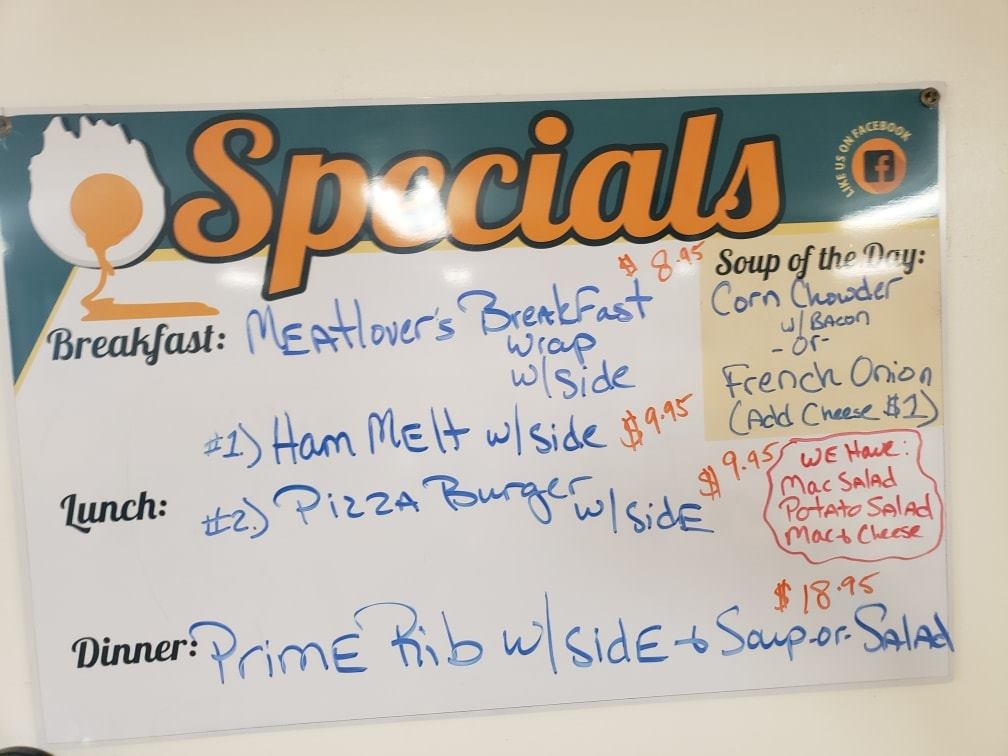 Specials
LIKE US ON FACEBOOK
f
Breakfast: MEAtlover's BreakFast $8.95
wrap
w/side
Soup of the Day:
Corn Chowder
w/ BACON
-or-
French Onion
(Add Cheese $1)
Lunch:
#1) Ham MElt w/side $9.95
#2) PIZZA Burger w/sidE $9.95
WE HAVE:
Mac SALAD
Potato SALAd
Mac & Cheese
$18.95
Dinner: PrimE Rib w/sidE & Soup-or-SALAd